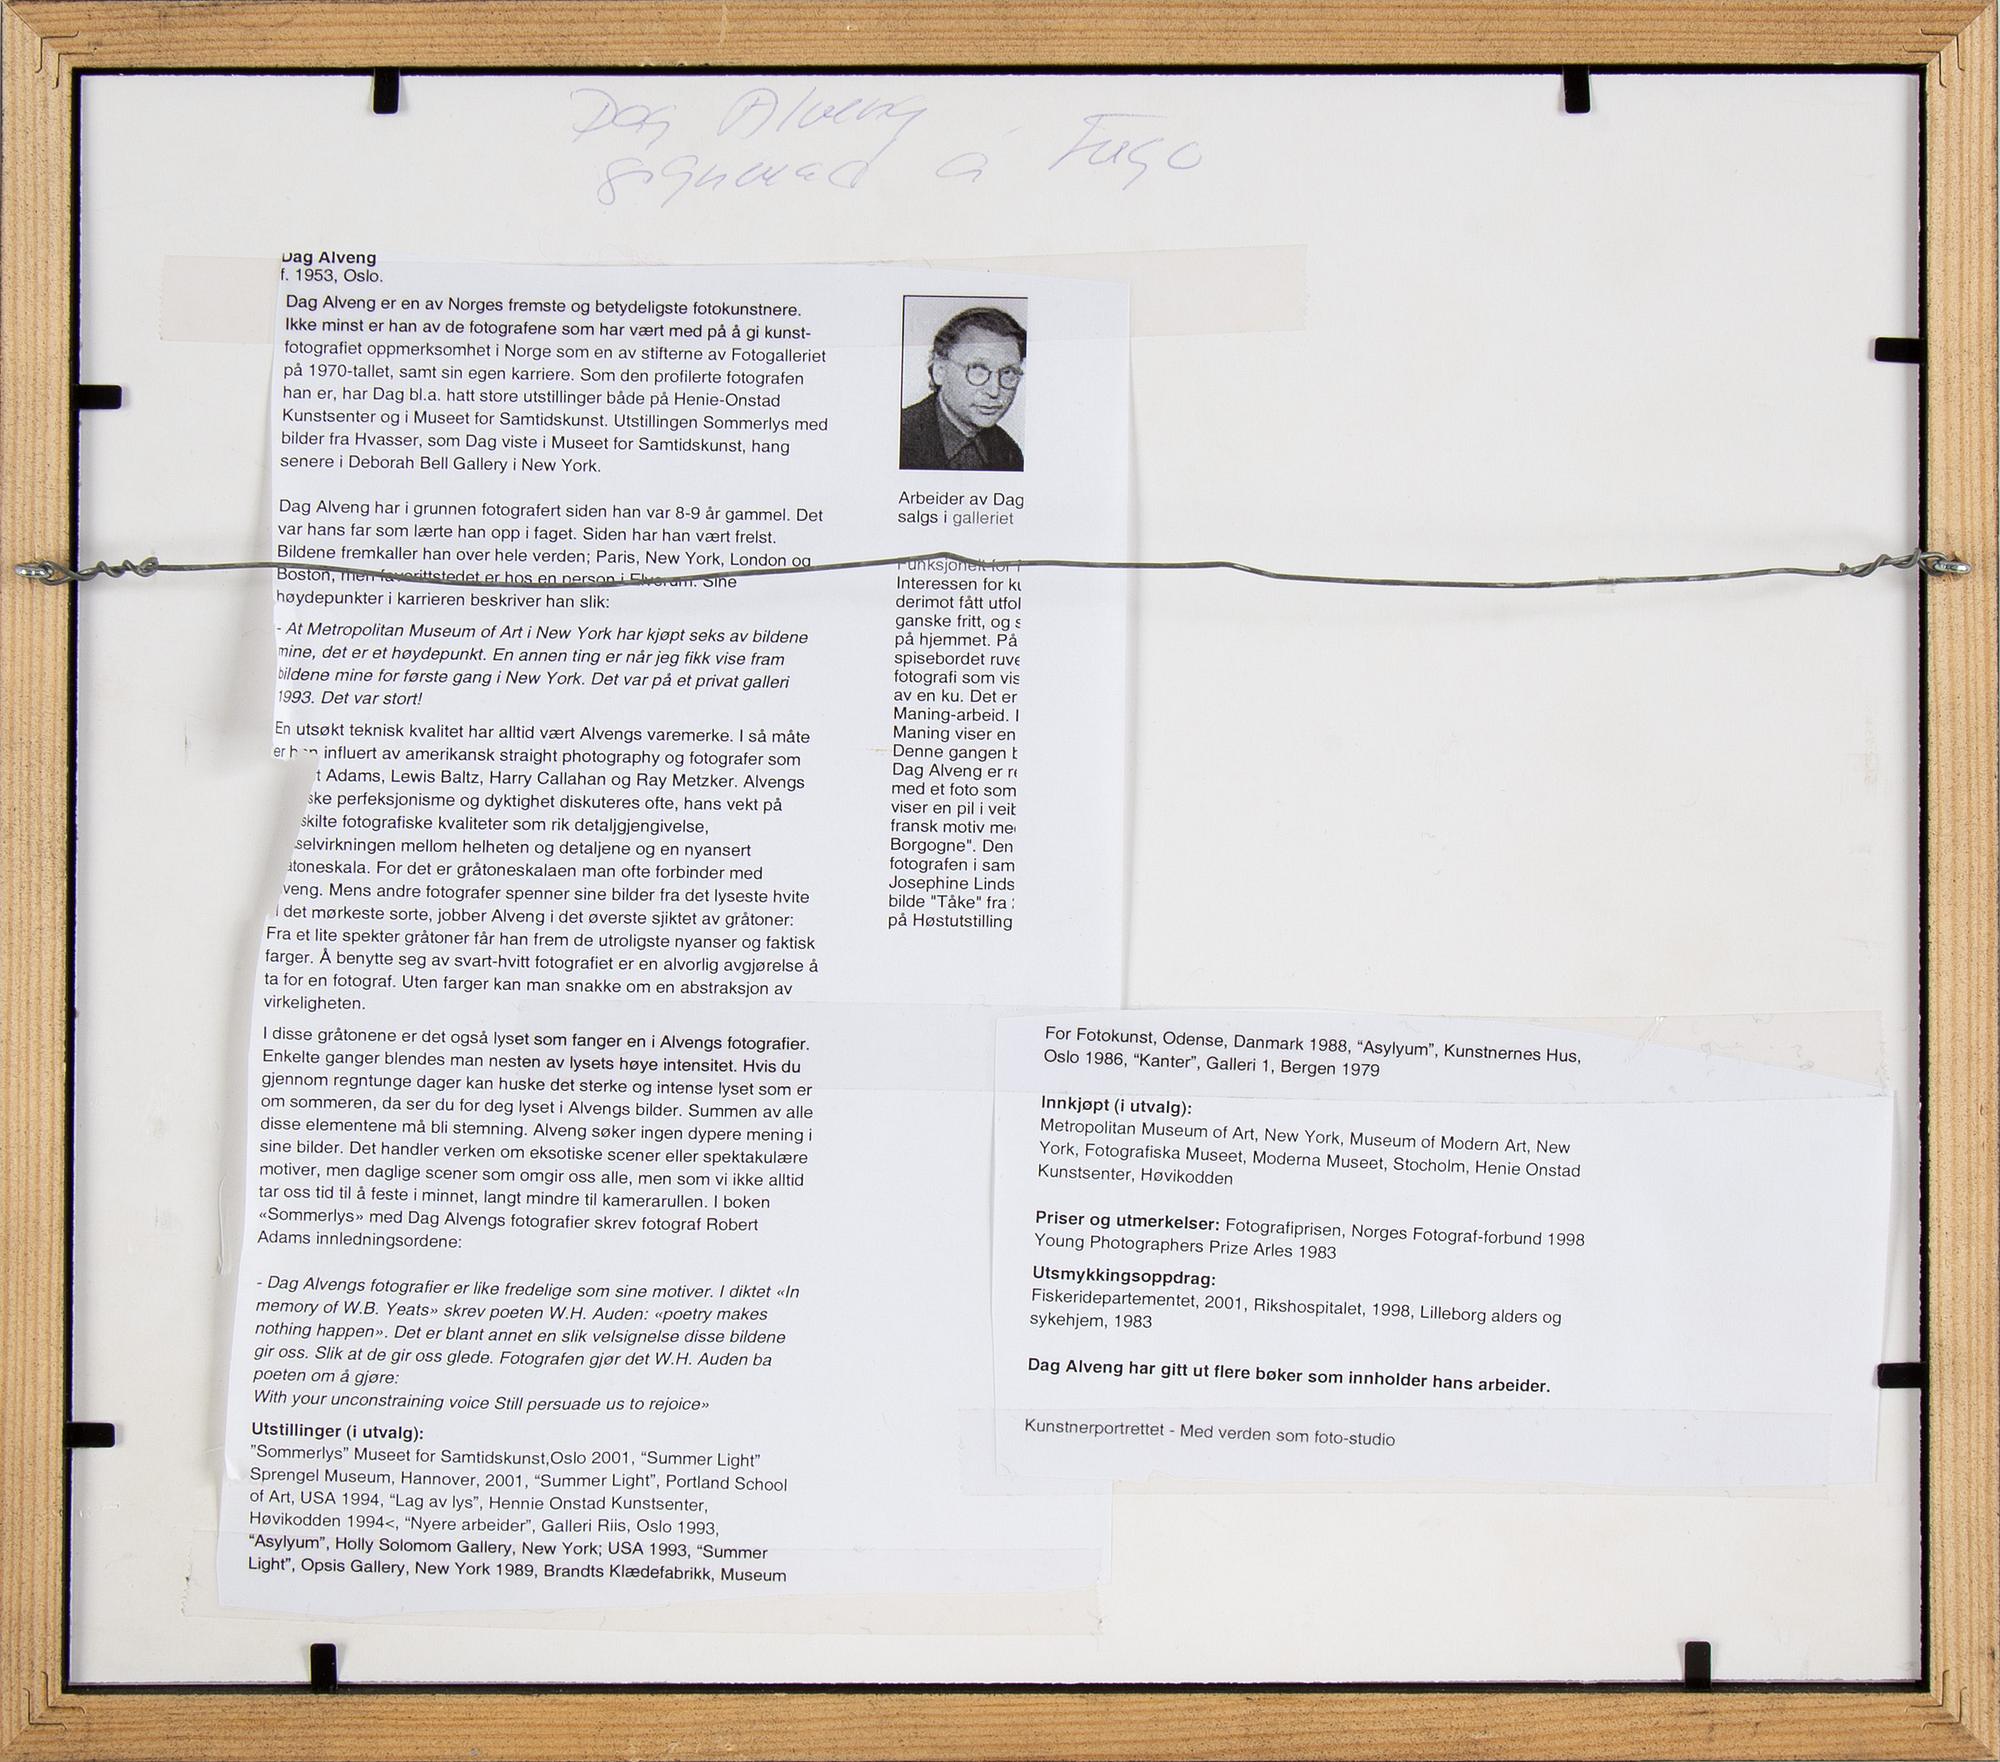 Dag Alveng
signerad à Fuso
Dag Alveng
f. 1953, Oslo.
Dag Alveng er en av Norges fremste og betydeligste fotokunstnere.
Ikke minst er han av de fotografene som har vært med på å gi kunst-
fotografiet oppmerksomhet i Norge som en av stifterne av Fotogalleriet
på 1970-tallet, samt sin egen karriere. Som den profilerte fotografen
han er, har Dag bl.a. hatt store utstillinger både på Henie-Onstad
Kunstsenter og i Museet for Samtidskunst. Utstillingen Sommerlys med
bilder fra Hvasser, som Dag viste i Museet for Samtidskunst, hang
senere i Deborah Bell Gallery i New York.
Dag Alveng har i grunnen fotografert siden han var 8-9 år gammel. Det
var hans far som lærte han opp i faget. Siden har han vært frelst.
Bildene fremkaller han over hele verden; Paris, New York, London og
Boston, men favorittstedet er hos en person i Elverum. Sine
høydepunkter i karrieren beskriver han slik:
- At Metropolitan Museum of Art i New York har kjøpt seks av bildene
mine, det er et høydepunkt. En annen ting er når jeg fikk vise fram
bildene mine for første gang i New York. Det var på et privat galleri
1993. Det var stort!
En utsøkt teknisk kvalitet har alltid vært Alvengs varemerke. I så måte
er han influert av amerikansk straight photography og fotografer som
t Adams, Lewis Baltz, Harry Callahan og Ray Metzker. Alvengs
ske perfeksjonisme og dyktighet diskuteres ofte, hans vekt på
skilte fotografiske kvaliteter som rik detaljgjengivelse,
selvirkningen mellom helheten og detaljene og en nyansert
åtoneskala. For det er gråtoneskalaen man ofte forbinder med
veng. Mens andre fotografer spenner sine bilder fra det lyseste hvite
i det mørkeste sorte, jobber Alveng i det øverste sjiktet av gråtoner:
Fra et lite spekter gråtoner får han frem de utroligste nyanser og faktisk
farger. Å benytte seg av svart-hvitt fotografiet er en alvorlig avgjørelse å
ta for en fotograf. Uten farger kan man snakke om en abstraksjon av
virkeligheten.
I disse gråtonene er det også lyset som fanger en i Alvengs fotografier.
Enkelte ganger blendes man nesten av lysets høye intensitet. Hvis du
gjennom regntunge dager kan huske det sterke og intense lyset som er
om sommeren, da ser du for deg lyset i Alvengs bilder. Summen av alle
disse elementene må bli stemning. Alveng søker ingen dypere mening i
sine bilder. Det handler verken om eksotiske scener eller spektakulære
motiver, men daglige scener som omgir oss alle, men som vi ikke alltid
tar oss tid til å feste i minnet, langt mindre til kamerarullen. I boken
«Sommerlys» med Dag Alvengs fotografier skrev fotograf Robert
Adams innledningsordene:
- Dag Alvengs fotografier er like fredelige som sine motiver. I diktet «In
memory of W.B. Yeats» skrev poeten W.H. Auden: «poetry makes
nothing happen». Det er blant annet en slik velsignelse disse bildene
gir oss. Slik at de gir oss glede. Fotografen gjør det W.H. Auden ba
poeten om å gjøre:
With your unconstraining voice Still persuade us to rejoice»
Utstillinger (i utvalg):
”Sommerlys” Museet for Samtidskunst,Oslo 2001, “Summer Light”
Sprengel Museum, Hannover, 2001, “Summer Light”, Portland School
of Art, USA 1994, “Lag av lys”, Hennie Onstad Kunstsenter,
Høvikodden 1994<, “Nyere arbeider”, Galleri Riis, Oslo 1993,
“Asylyum”, Holly Solomom Gallery, New York; USA 1993, “Summer
Light”, Opsis Gallery, New York 1989, Brandts Klædefabrikk, Museum
Arbeider av Dag
salgs i galleriet
Funksjonelt for
Interessen for ku
derimot fått utfol
ganske fritt, og s
på hjemmet. På
spisebordet ruve
fotografi som vis
av en ku. Det er
Maning-arbeid. I
Maning viser en
Denne gangen b
Dag Alveng er re
med et foto som
viser en pil i veib
fransk motiv me
Borgogne". Den
fotografen i sam
Josephine Linds
bilde "Tåke" fra
på Høstutstilling
For Fotokunst, Odense, Danmark 1988, “Asylyum”, Kunstnernes Hus,
Oslo 1986, “Kanter”, Galleri 1, Bergen 1979
Innkjøpt (i utvalg):
Metropolitan Museum of Art, New York, Museum of Modern Art, New
York, Fotografiska Museet, Moderna Museet, Stocholm, Henie Onstad
Kunstsenter, Høvikodden
Priser og utmerkelser: Fotografiprisen, Norges Fotograf-forbund 1998
Young Photographers Prize Arles 1983
Utsmykkingsoppdrag:
Fiskeridepartementet, 2001, Rikshospitalet, 1998, Lilleborg alders og
sykehjem, 1983
Dag Alveng har gitt ut flere bøker som innholder hans arbeider.
Kunstnerportrettet - Med verden som foto-studio